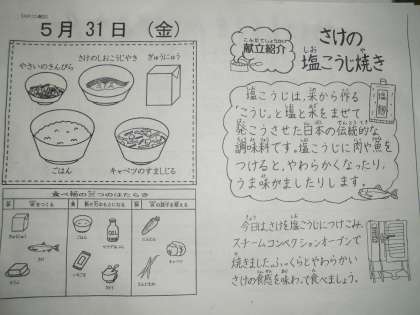 5月 31日 (金)
さけのしおこうじやき
ぎゅうにゅう
やさいのきんぴら
ごはん
キャベツのすましじる
食べ物の3つのはたらき
こんだてしょうかい
献立紹介
さけの
しお
塩こうじ焼き
塩こうじは、米から作る
「こうじ」と塩と水をまぜて
発こうさせた日本の伝統的な
調味料です。塩こうじに肉や魚を
つけると、やわらかくなったり、
うま味がましたりします。
塩麹
今日は、さけを塩こうじにつけこみ、
スチームコンベクションオーブンで
焼きました。ふっくらとやわらかい
さけの食感を味わって食べましょう。